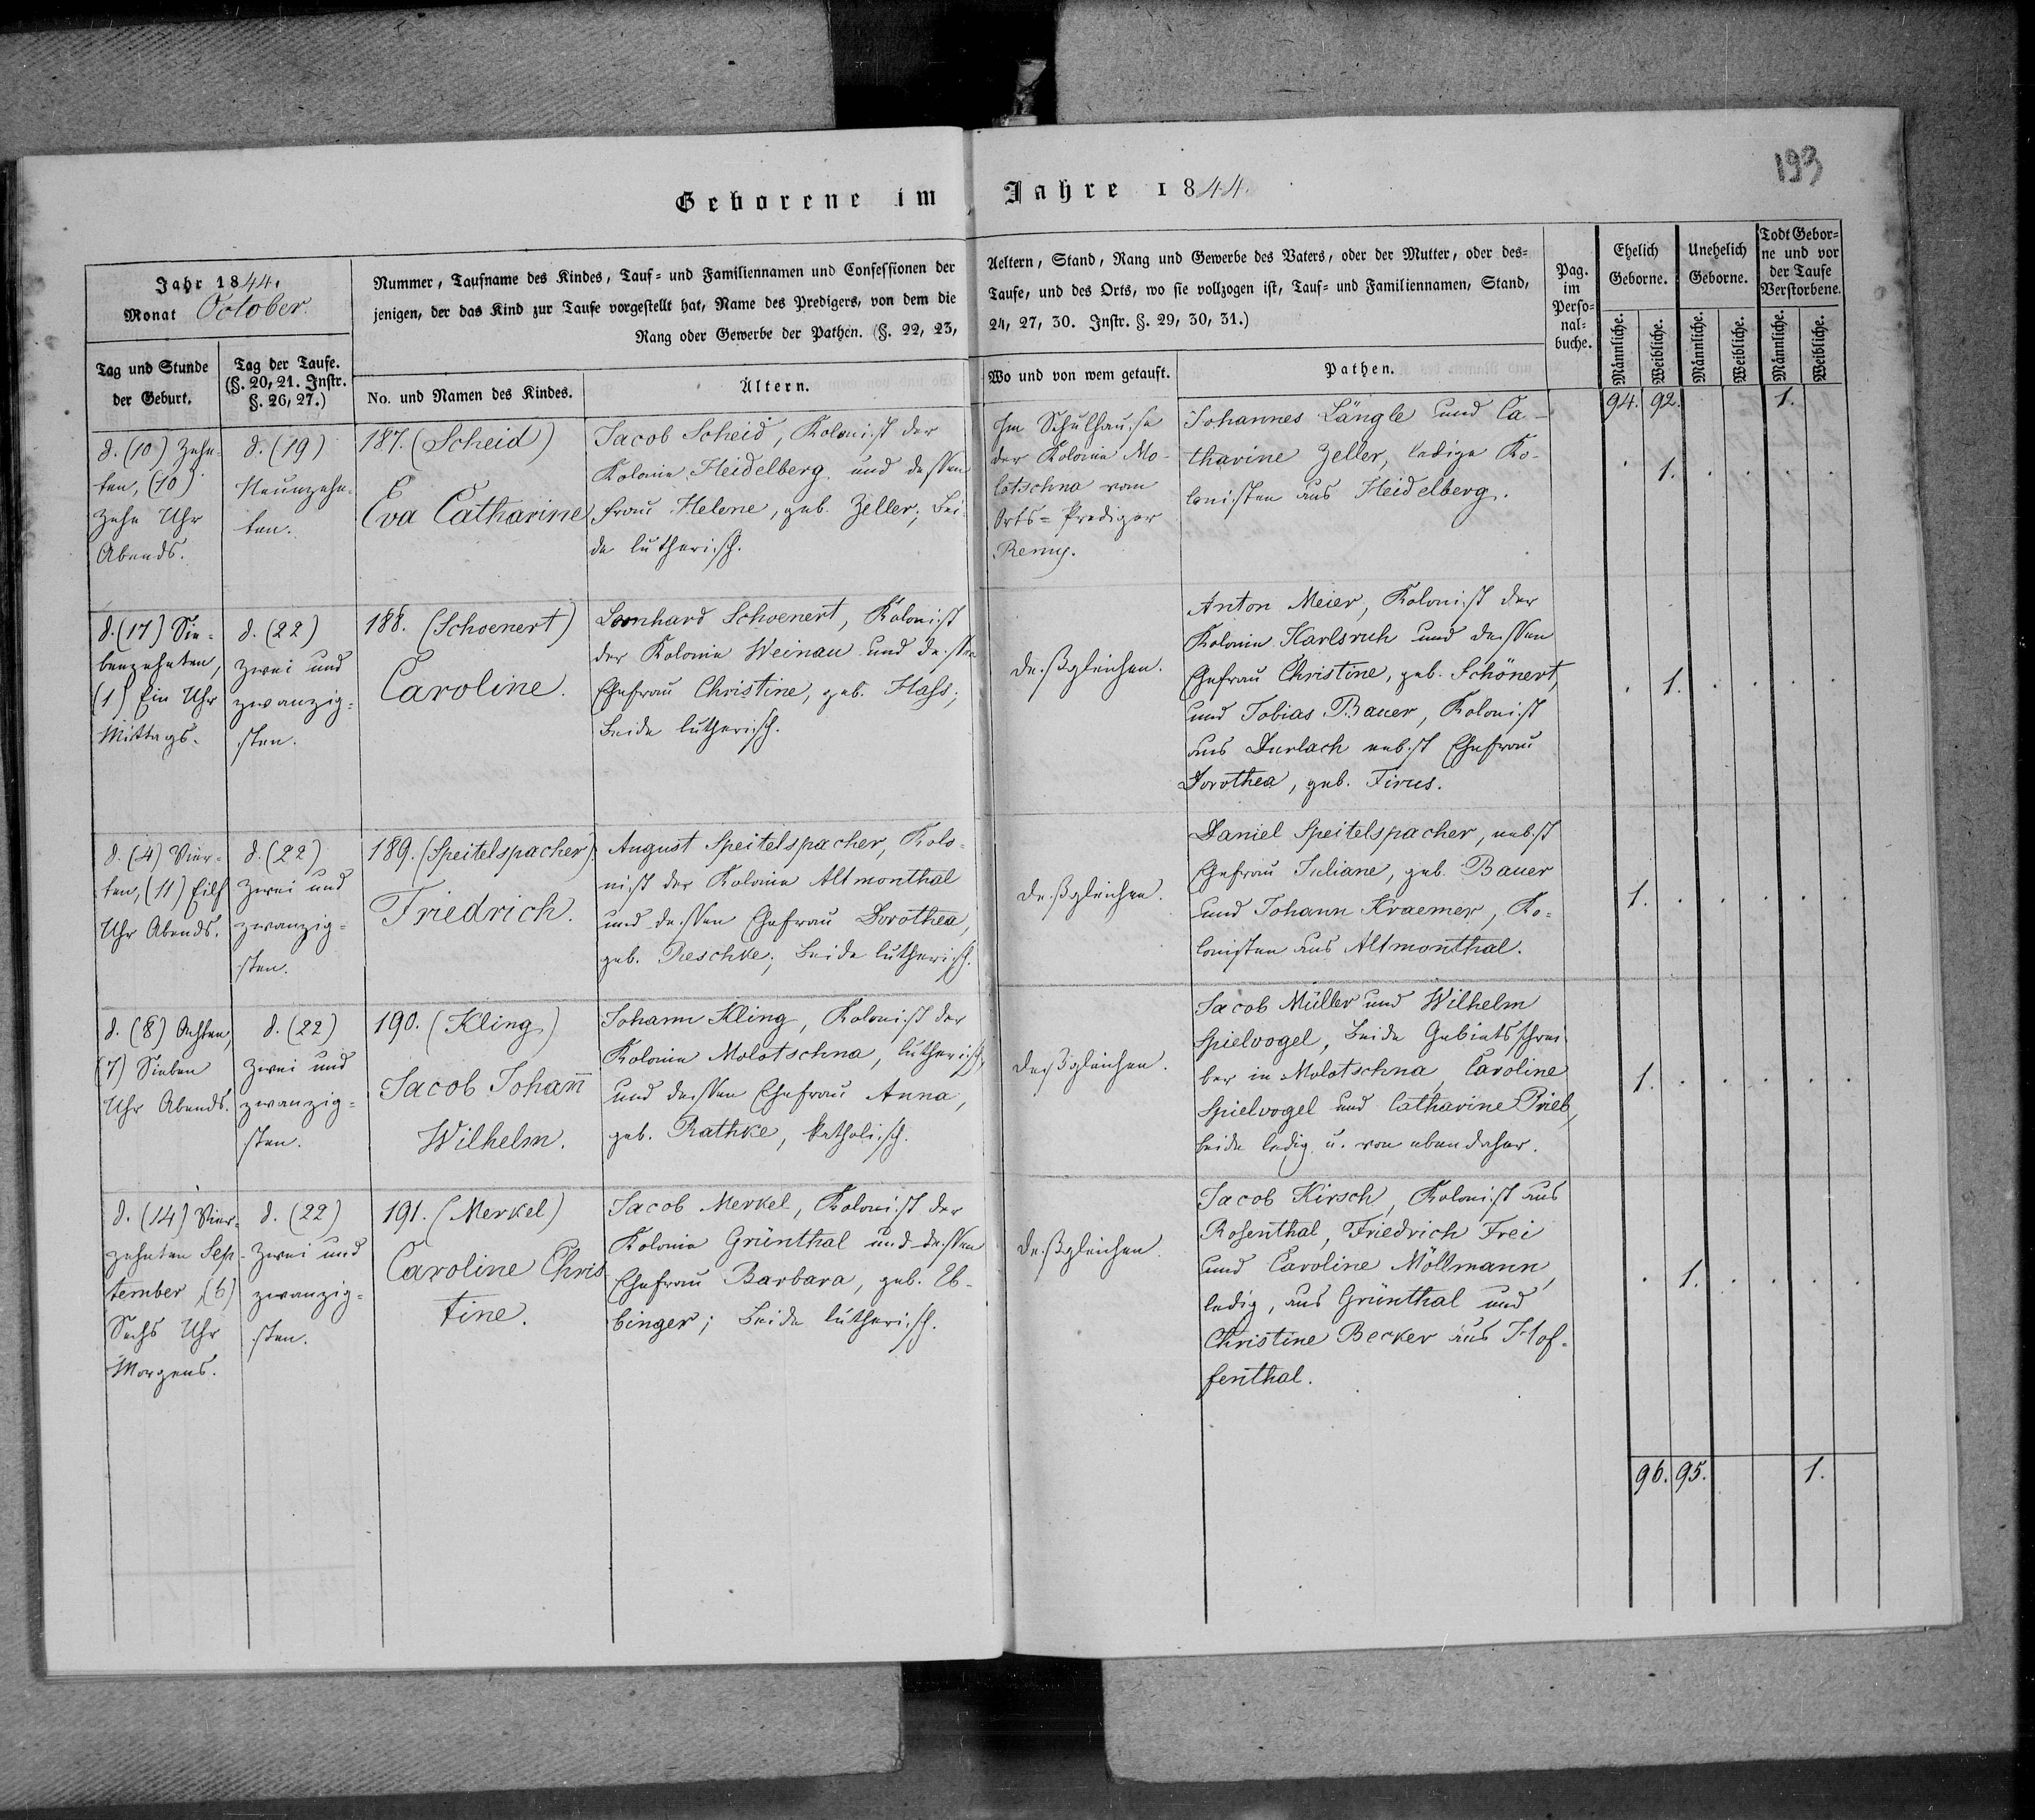 193
Geborene im Jahre 1844.
Jahr 1844.
Monat October.
Tag und Stunde
der Geburt.
Tag der Taufe.
(§. 20, 21. Instr.
§. 26, 27.)
Nummer, Taufname des Kindes, Tauf- und Familiennamen und Confessionen der
jenigen, der das Kind zur Taufe vorgestellt hat, Name des Predigers, von dem die
Rang oder Gewerbe der Pathen. (§. 22, 23,
No. und Namen des Kindes.
Ältern.
Aeltern, Stand, Rang und Gewerbe des Vaters, oder der Mutter, oder des-
Taufe, und des Orts, wo sie vollzogen ist, Tauf- und Familiennamen, Stand,
24, 27, 30. Instr. §. 29, 30, 31.)
Wo und von wem getauft.
Pathen.
Pag.
im
Perso-
nal-
buche.
Ehelich
Geborne.
Unehelich
Geborne.
Todt Gebor-
ne und vor
der Taufe
Verstorbene.
Männliche.
Weibliche.
Männliche.
Weibliche.
Männliche.
Weibliche.
94. 92. 1.
d. (10) Zehn-
ten, (10)
Zehn Uhr
Abends.
d. (19)
Neunzehn-
ten.
187. (Scheid)
Eva Catharine
Jacob Scheid, Kolonist der
Kolonie Heidelberg und dessen
Frau Helene, geb. Zeller; Bei-
de lutherisch.
Im Schulhause
der Kolonie Mo-
lotschna vom
Orts-Prediger
Remy.
Johannes Längle und Ca-
tharine Zeller, ledige Ko-
lonisten aus Heidelberg.
. 1. . . . .
d. (17) Sie-
benzehnten,
(1) Ein Uhr
Mittags.
d. (22)
Zwei und
zwanzig-
sten.
188. (Schoenert)
Caroline.
Leonhard Schoenert, Kolonist
der Kolonie Weinau und dessen
Ehefrau Christine, geb. Hass;
Beide lutherisch.
Deßgleichen.
Anton Meier, Kolonist der
Kolonie Karlsruh und dessen
Ehefrau Christine, geb. Schönert,
und Tobias Bauer, Kolonist
aus Durlach nebst Ehefrau
Dorothea, geb. Firus.
. 1. . . . .
d. (4) Vier-
ten, (11) Eilf
Uhr Abends.
d. (22)
Zwei und
zwanzig-
sten.
189. (Speitelspacher)
Friedrich.
August Speitelspacher, Kolo-
nist der Kolonie Altmonthal
und dessen Ehefrau Dorothea,
geb. Reschke; Beide lutherisch.
Deßgleichen.
Daniel Speitelspacher, nebst
Ehefrau Juliane, geb. Bauer
und Johann Kraemer, Ko-
lonisten aus Altmonthal.
1. . . . . .
d. (8) Achten,
(7) Sieben
Uhr Abends.
d. (22)
Zwei und
zwanzig-
sten.
190. (Kling)
Jacob Johan̄
Wilhelm.
Johann Kling, Kolonist der
Kolonie Molotschna, lutherisch,
und dessen Ehefrau Anna,
geb. Rathke, katholisch.
Deßgleichen.
Jacob Müller und Wilhelm
Spielvogel, Beide Gebietsschrei-
ber in Molotschna, Caroline
Spielvogel und Catharine Prieb,
beide ledig u. von ebendaher.
1. . . . . .
d. (14) Vier-
zehnten Sep-
tember, (6)
Sechs Uhr
Morgens.
d. (22)
Zwei und
zwanzig-
sten.
191. (Merkel)
Caroline Chris
tine.
Jacob Merkel, Kolonist der
Kolonie Grünthal und dessen
Ehefrau Barbara, geb. Eb-
binger; Beide lutherisch.
Deßgleichen.
Jacob Kirsch, Kolonist aus
Rosenthal, Friedrich Frei
und Caroline Möllmann,
ledig, aus Grünthal und
Christine Becker aus Hof-
fenthal.
. 1. . . . .
96. 95. 1.